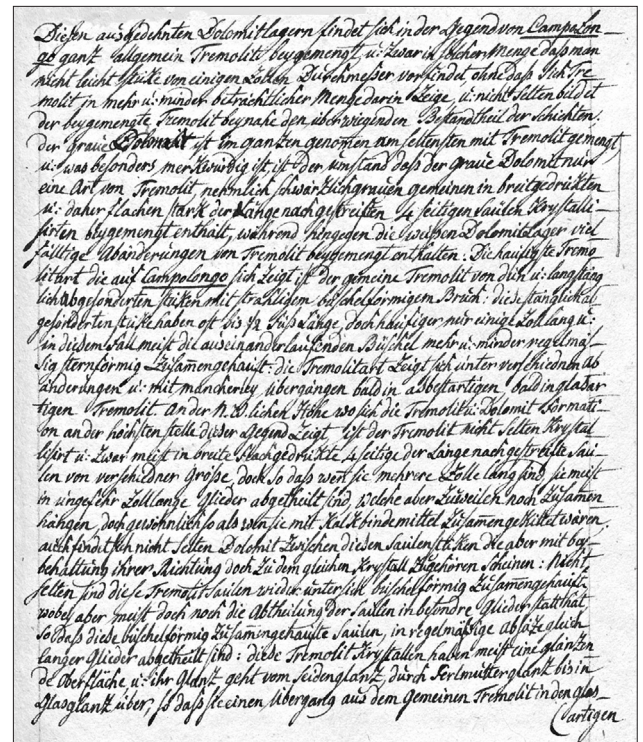 Diesen ausgedehnten Dolomitlagern findet sich in der Gegend von Campolon-
go ganz allgemein Tremolit beygemengt, u: zwar in solcher Menge daß man
nicht leicht stüke von einigen Durchmesser vorfindet ohne daß sich Tre-
molit in mehr u: minder beträchtlicher Menge darin zeige, u: nicht selten bildet
der beygemengte Tremolit beynahe den überwiegenden Bestandtheil der Schichten.
der Graue Dolomit ist im ganzen genomen am seltensten mit Tremolit gemengt,
u: was besonders merkwürdig ist, ist der umstand daß der graue Dolomit nur
eine Art von Tremolit nehmlich schwärzlichgrauen gemeinen in breitgedrükten
u: daher flachen stark der Länge nach gestreiften 4 seitigen säulen Krystalli-
sirten beygemengt enthält, während hingegen die weißen Dolomitlager viel-
fälltige Abänderungen von Tremolit beygemengt enthalten: Die häufigste Tremo-
litart die auf Campolongo sich zeigt ist der gemeine Tremolit von dün u: langstäng-
lich abgesonderten stüken mit strahligem büschelförmigem Bruch: diese stänglich ab-
gesonderten stüke haben oft bis 1/2 Fuß Länge, doch häufiger nur einige Zoll lang u:
in diesem Fall meist die auseinanderlaufenden Büschel mehr u: minder regelmä-
sig sternförmig zusamengehäuft: die Tremolitart zeigt sich unter verschiednen ab-
änderungen u: mit mancherley übergängen bald in asbestartigen bald in glasar-
tigen Tremolit. An der N.W.lichen Höhe wo sich die Tremolit u: Dolomit Formati-
on an der höchsten stelle dieser Gegend zeigt, ist der Tremolit nicht selten Krystal-
lisirt u: zwar meist in breite flachgedrükte 4 seitige der Länge nach gestreifte Säu-
len von verschiedner Größe, doch so daß wen sie mehrere Zolle lang sind, sie meist
in ungefehr Zolllange Glieder abgetheilt sind, welche aber zuweilen noch zusamen
hängen, doch gewöhnlich so als wen sie mit Kalkbindemittel zusamengeküttet wären;
auch findet sich nicht selten Dolomit zwischen diesen Säulenstüken die aber mit bey-
behaltung ihrer Richtung doch zu dem gleichen Krystall zugehören scheinen: Nicht
selten sind diese Tremolit Säulen wieder unter sich büschelförmig zusamengehäuft
wobey aber meist doch noch die Abtheilung der Säulen in besondre Glieder statt hat,
so daß diese büschelförmig zusamingehäufte Säulen, in regelmäßige absäze gleich
langer Glieder abgetheilt sind: diese Tremolit Krystallen haben meist eine glänzen-
de Oberfläche u: ihr Glanz geht vom Seidenglanz, durch Perlmutterglanz bis in
Glasglanz über, so daß sie einen Übergang aus dem Gemeinen Tremolit in den glas-
artigen